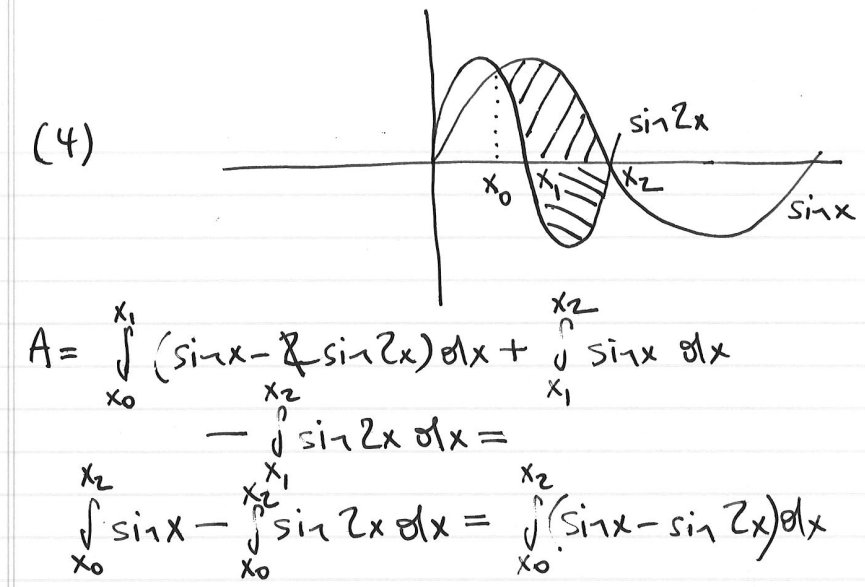 (4)
sin2x
x₀ x₁ x₂
sinx
A = ∫_{x₀}^{x₁} (sinx - sin2x)dx + ∫_{x₁}^{x₂} sinx dx
- ∫_{x₁}^{x₂} sin2x dx =
∫_{x₀}^{x₂} sinx - ∫_{x₀}^{x₂} sin2x dx = ∫_{x₀}^{x₂} (sinx - sin2x)dx